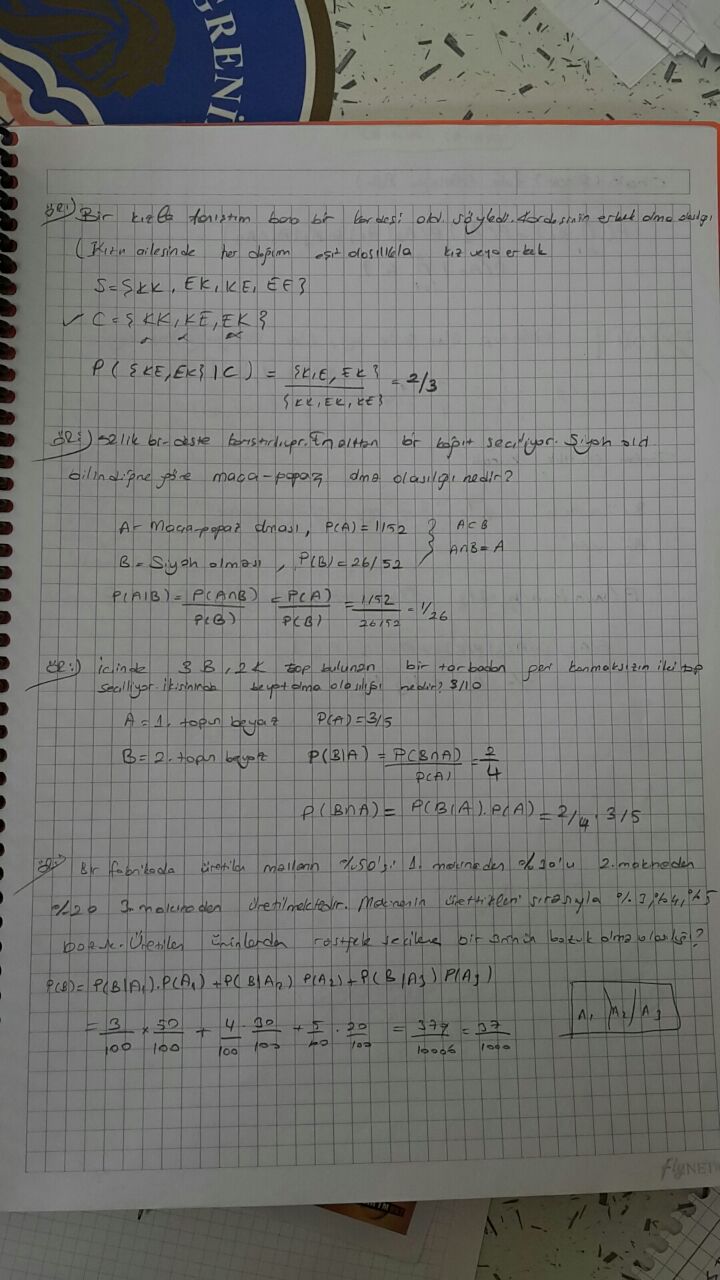 GRENİ
ör:) Bir kızla tanıştım bana bir kardeşi old. söyledi. Kardeşinin erkek olma olasılığı
(Kızın ailesinde her doğum eşit olasılıkla kız veya erkek
S={KK, EK, KE, EE}
✓ C={KK, KE, EK}
P({KE,EK}|C) = {KE, EK} / {KK, EK, KE} = 2/3
ör:) 52lik bir deste karıştırılıyor. En alttan bir kağıt seçiliyor. Siyah old
bilindiğine göre maça-papaz olma olasılığı nedir?
A= Maça-papaz olması, P(A)=1/52 } A⊂B
B= Siyah olması, P(B)=26/52 } A∩B=A
P(A|B)= P(A∩B)/P(B) = P(A)/P(B) = 1/52 / 26/52 = 1/26
ör:) içinde 3B, 2K top bulunan bir torbadan geri konmaksızın iki top
seçiliyor. ikisininde beyaz olma olasılığı nedir? 3/10
A=1. topun beyaz P(A)=3/5
B=2. topun beyaz P(B|A) = P(B∩A)/P(A) = 2/4
P(B∩A)= P(B|A).P(A) = 2/4 . 3/5
ör: Bir fabrikada üretilen malların %50'si 1. makineden %30'u 2. makineden
%20 3. makineden üretilmektedir. Makinenin ürettikleri sırasıyla %3, %4, %5
bozuk. Üretilen ürünlerden rastgele seçilen bir ürünün bozuk olma olasılığı?
P(B)= P(B|A₁).P(A₁) + P(B|A₂) P(A₂) + P(B|A₃) P(A₃)
A₁ A₂ A₃
= 3/100 × 50/100 + 4/100 . 30/100 + 5/100 . 20/100 = 370/10000 = 37/1000
flyNET